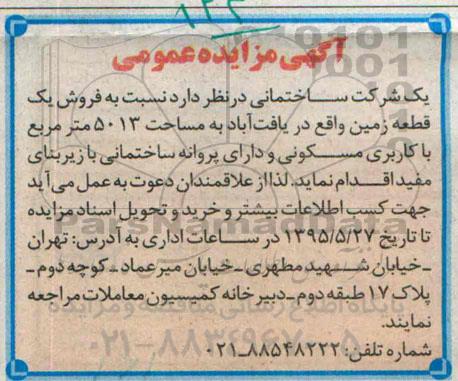 ۱۲۳
آگهی مزایده عمومی
یک شرکت ساختمانی در نظر دارد نسبت به فروش یک
قطعه زمین واقع در یافت آباد به مساحت ۵۰۱۳ متر مربع
با کاربری مسکونی و دارای پروانه ساختمانی با زیربنای
مفید اقدام نماید. لذا از علاقمندان دعوت به عمل می آید
جهت کسب اطلاعات بیشتر و خرید و تحویل اسناد مزایده
تا تاریخ ۱۳۹۵/۵/۲۷ در ساعات اداری به آدرس: تهران
ـ خیابان شهید مطهری ـ خیابان میرعماد ـ کوچه دوم ـ
پلاک ۱۷ طبقه دوم ـ دبیرخانه کمیسیون معاملات مراجعه
نمایند.
شماره تلفن: ۸۸۵۴۸۲۲۲ـ۰۲۱
ParsNamadData
پایگاه اطلاع رسانی مناقصه و مزایده